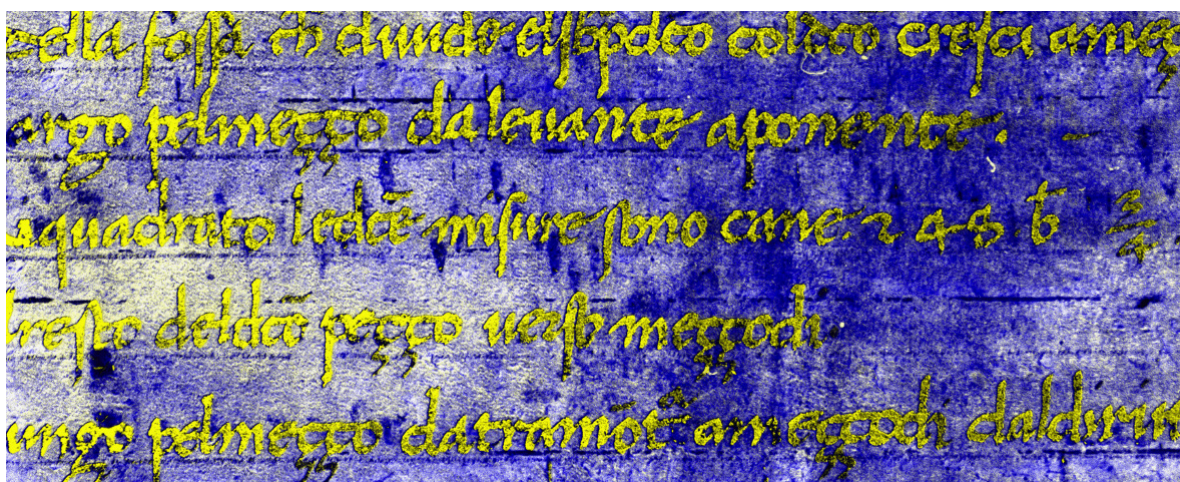 della fossa ch diuide el sopdco colcto cresci ameç
largo pelmeçço da leuante aponente.
squadrato le dcē misure sono canne. 2 48. b̄ 3/4.
lresto deldcō peçço uerso meççodi
lungo pelmeçço datramōt̄ ameççodi daldirit